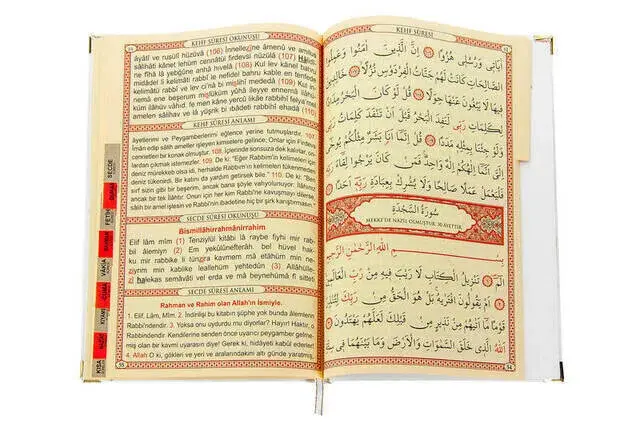 KEHF SÛRESİ OKUNUŞU
âyâtî ve rusulî hüzüvâ (106) İnnellezîne âmenû ve amilus
sâlihâti kânet lehüm cennâtül firdevsi nüzülâ (107) Hâlidî-
ne fîhâ lâ yebğûne anhâ hivelâ (108) Kul lev kânel bahru
midâdel li kelimâti rabbî le nefidel bahru kable en tenfede
kelimâtü rabbî ve lev ci'nâ bi mislihî mededâ (109) Kul in-
nemâ ene beşerum mislüküm yûhâ ileyye ennemâ ilâhü-
küm ilâhüv vâhıd, fe men kâne yercû likâe rabbihî felya'mel
amelen sâlihav ve lâ yüşrik bi ıbâdeti rabbihî ehadâ (110)
KEHF SÛRESİ ANLAMI
âyetlerimi ve Peygamberlerimi eğlence yerine tutmuşlardır. 107.
İman edip sâlih ameller işleyen kimselere gelince; onlar için Firdevs
cennetleri bir konak olmuştur. 108. İçlerinde sonsuza dek kalırlar, on-
lardan çıkmak istemezler. 109. De ki: "Eğer Rabbim'in kelimeleri için
deniz mürekkep olsa idi, herhalde Rabbim'in kelimeleri tükenmeden
deniz tükenirdi. Bir katını da yardım getirsek bile." 110. De ki: "Ben
sırf sizin gibi bir beşerim, ancak bana şöyle vahyolunuyor: İlâhınız
ancak bir tek İlâhtır. Onun için her kim Rabbi'ne kavuşmayı dilerse
SECDE SÛRESİ OKUNUŞU
Bismillâhirrahmânirrahîm
Elif lâm mîm (1) Tenzîlül kitâbi lâ raybe fîhi mir rab-
bil âlemîyn (2) Em yekûlûnefterâh. bel hüvel hak-
ku mir rabbike li tünzira kavmem mâ etâhüm min ne-
zîyrim min kablike leallehüm yehtedûn (3) Allâhülle-
zî halekas semâvâti vel erda ve mâ beynehümâ fî sitteti
SECDE SÛRESİ ANLAMI
Rahman ve Rahim olan Allah'ın ismiyle.
1. Elif, Lâm, Mîm. 2. İndirilişi bu kitabın şüphe yok bunda âlemlerin
Rabbi'ndendir. 3. Yoksa onu uydurdu mu diyorlar? Hayır! Haktır, o
Rabbindendir. Kendilerine senden önce uyarıcı peygamber gelme-
miş olan bir kavmi uyarasın diye! Gerek ki, hidâyeti kabul ederler!
4. Allah O ki, gökleri ve yeri ve aralarındakini altı günde yaratmış,
55
SECDE
FETİH
VÂKIA
CUMA
KISA
KEHF SÛRESİ
اٰيَاتِى وَرُسُلِى هُزُوًا ﴿١٠٦﴾ اِنَّ الَّذِينَ اٰمَنُوا وَعَمِلُوا
الصَّالِحَاتِ كَانَتْ لَهُمْ جَنَّاتُ الْفِرْدَوْسِ نُزُلًا ﴿١٠٧﴾ خَالِدِينَ
فِيهَا لَا يَبْغُونَ عَنْهَا حِوَلًا ﴿١٠٨﴾ قُلْ لَوْ كَانَ الْبَحْرُ مِدَادًا
لِكَلِمَاتِ رَبِّى لَنَفِدَ الْبَحْرُ قَبْلَ اَنْ تَنْفَدَ كَلِمَاتُ رَبِّى
وَلَوْ جِئْنَا بِمِثْلِهِ مَدَدًا ﴿١٠٩﴾ قُلْ اِنَّمَا اَنَا بَشَرٌ مِثْلُكُمْ يُوحٰى
اِلَىَّ اَنَّمَا اِلٰهُكُمْ اِلٰهٌ وَاحِدٌ فَمَنْ كَانَ يَرْجُوا لِقَاءَ رَبِّهِ
فَلْيَعْمَلْ عَمَلًا صَالِحًا وَلَا يُشْرِكْ بِعِبَادَةِ رَبِّهِ اَحَدًا ﴿١١٠﴾
سُورَةُ السَّجْدَةِ
MEKKE'DE NÂZİL OLMUŞTUR. 30 AYETTİR.
بِسْمِ اللهِ الرَّحْمٰنِ الرَّحِيمِ
الٓمٓ ﴿١﴾ تَنْزِيلُ الْكِتَابِ لَا رَيْبَ فِيهِ مِنْ رَبِّ الْعَالَمِينَ ﴿٢﴾
اَمْ يَقُولُونَ افْتَرٰيهُ بَلْ هُوَ الْحَقُّ مِنْ رَبِّكَ لِتُنْذِرَ
قَوْمًا مَا اَتٰيهُمْ مِنْ نَذِيرٍ مِنْ قَبْلِكَ لَعَلَّهُمْ يَهْتَدُونَ ﴿٣﴾
اَللهُ الَّذِى خَلَقَ السَّمٰوَاتِ وَالْاَرْضَ وَمَا بَيْنَهُمَا فِى
54